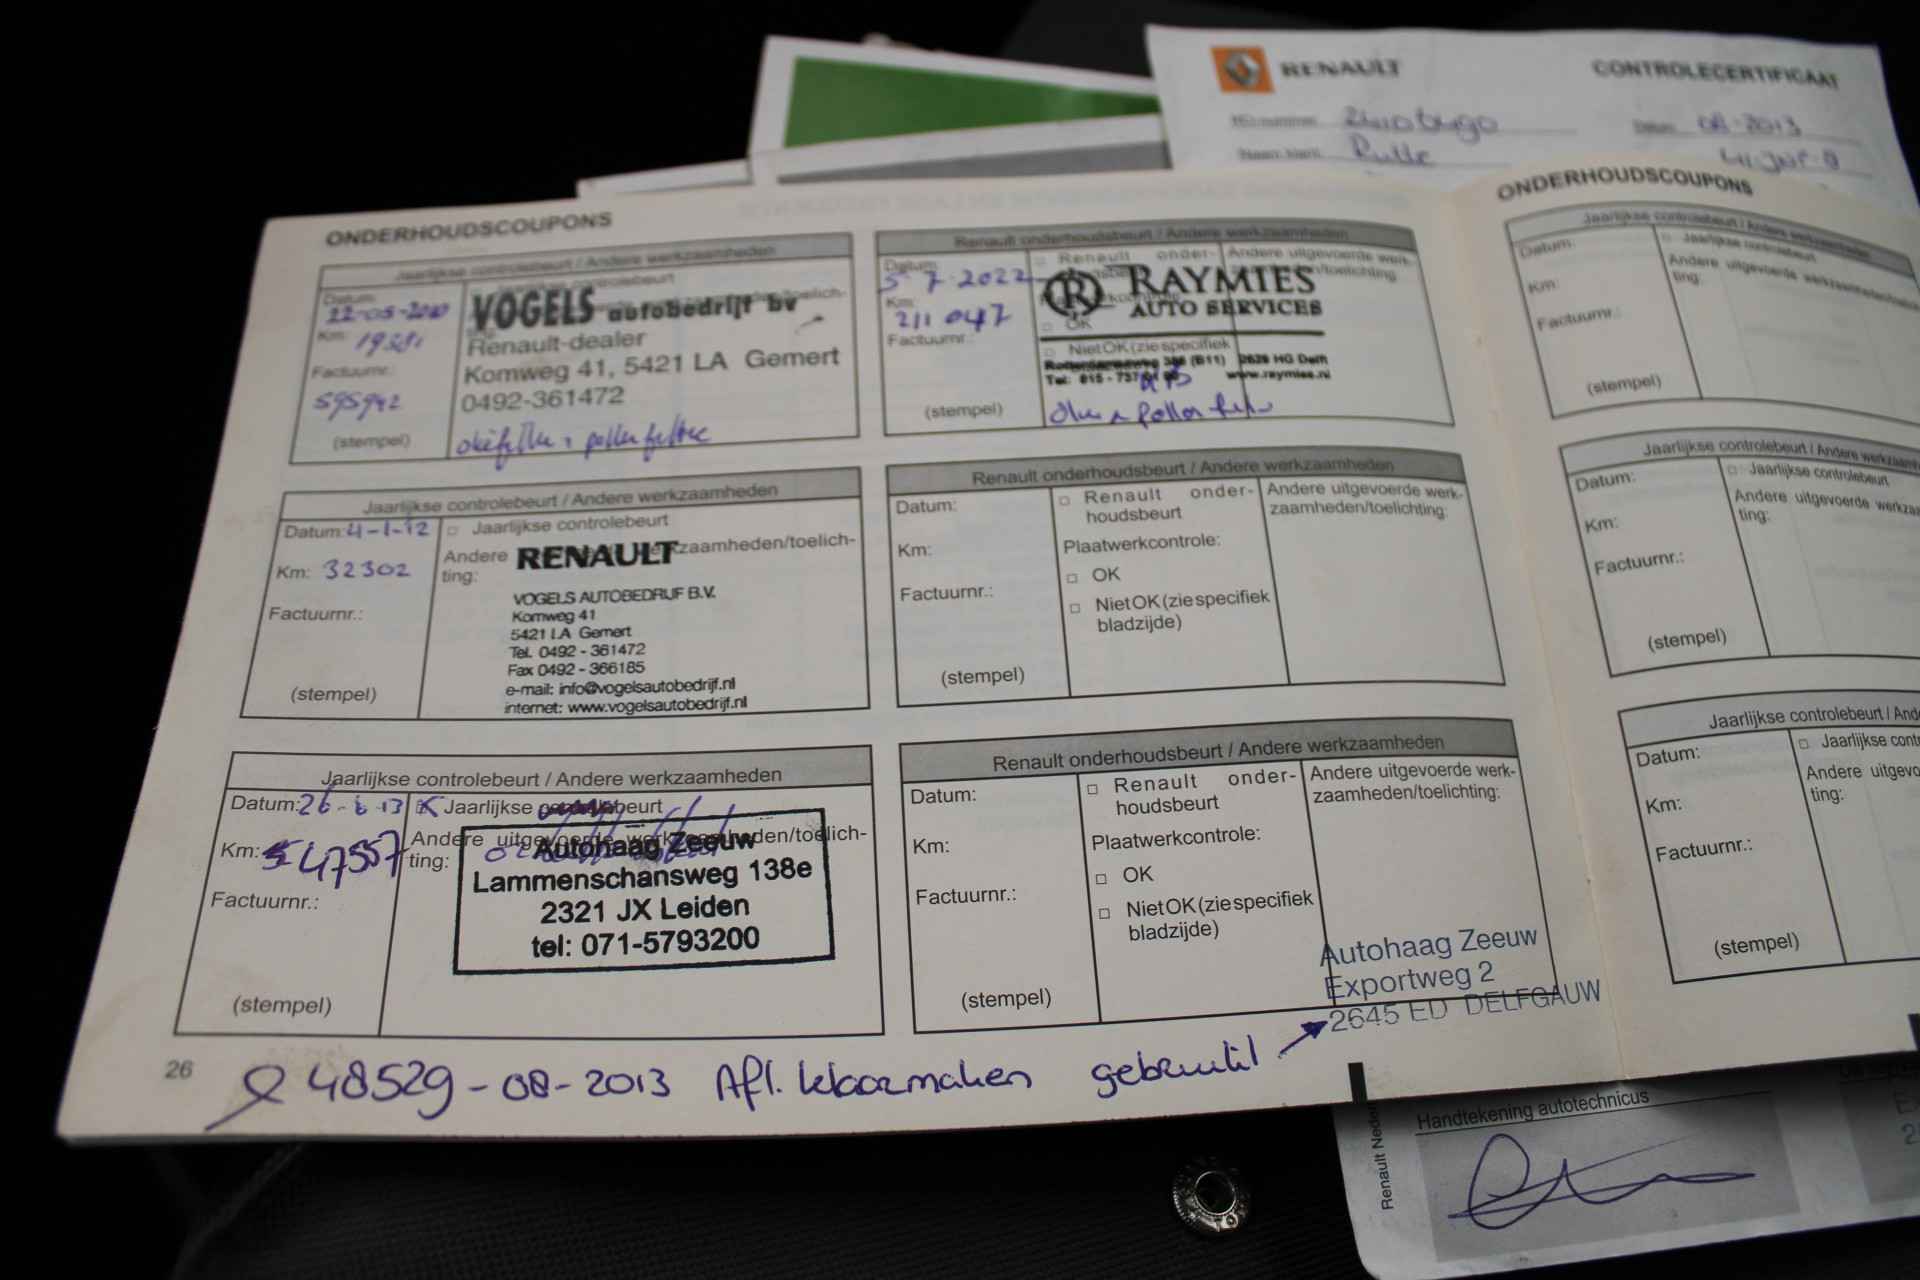 RENAULT
CONTROLECERTIFICAAT
08-2013
Rutte
ONDERHOUDSCOUPONS
Jaarlijkse controlebeurt / Andere werkzaamheden
Datum:
Km:
Factuurnr.:
595942
(stempel)
VOGELS autobedrijf bv
Renault-dealer
Komweg 41, 5421 LA Gemert
0492-361472
Jaarlijkse controlebeurt / Andere werkzaamheden
Datum: 4-1-12
Km: 32302
Factuurnr.:
(stempel)
□ Jaarlijkse controlebeurt
Andere werkzaamheden/toelich-
ting:
RENAULT
VOGELS AUTOBEDRIJF B.V.
Komweg 41
5421 LA Gemert
Tel. 0492 - 361472
Fax 0492 - 366185
e-mail: info@vogelsautobedrijf.nl
internet: www.vogelsautobedrijf.nl
Jaarlijkse controlebeurt / Andere werkzaamheden
Datum: 26-6-13
Km: 47557
Factuurnr.:
(stempel)
Jaarlijkse controlebeurt
Andere uitgevoerde werkzaamheden/toelich-
ting:
Autohaag Zeeuw
Lammenschansweg 138e
2321 JX Leiden
tel: 071-5793200
Renault onderhoudsbeurt / Andere werkzaamheden
Datum:
5-7-2022
Km:
211 047
Factuurnr.:
(stempel)
□ Renault onder-
□ OK
□ Niet OK (zie specifiek
Andere uitgevoerde werk-
zaamheden/toelichting
R RAYMIES
AUTO SERVICES
(B11) 2628 HG Delft
www.raymies.nl
Renault onderhoudsbeurt / Andere werkzaamheden
Datum:
Km:
Factuurnr.:
(stempel)
□ Renault onder-
houdsbeurt
Plaatwerkcontrole:
□ OK
□ Niet OK (zie specifiek
bladzijde)
Andere uitgevoerde werk-
zaamheden/toelichting:
Renault onderhoudsbeurt / Andere werkzaamheden
Datum:
Km:
Factuurnr.:
(stempel)
□ Renault onder-
houdsbeurt
Plaatwerkcontrole:
□ OK
□ Niet OK (zie specifiek
bladzijde)
Andere uitgevoerde werk-
zaamheden/toelichting:
Autohaag Zeeuw
Exportweg 2
2645 ED DELFGAUW
26
48529 - 08 - 2013 Afl. klaarmaken
ONDERHOUDSCOUPONS
Jaarlijkse controlebeurt / Andere
Datum:
Km:
Factuurnr.:
(stempel)
□ Jaarlijkse controlebeurt
Andere uitgevoerde
ting:
Jaarlijkse controlebeurt / Andere
Datum:
Km:
Factuurnr.:
(stempel)
□ Jaarlijkse controlebeurt
Andere uitgevoerde
ting:
Jaarlijkse controlebeurt /
Datum:
Km:
Factuurnr.:
(stempel)
□ Jaarlijkse
Andere
ting:
Handtekening autotechnicus
Renault